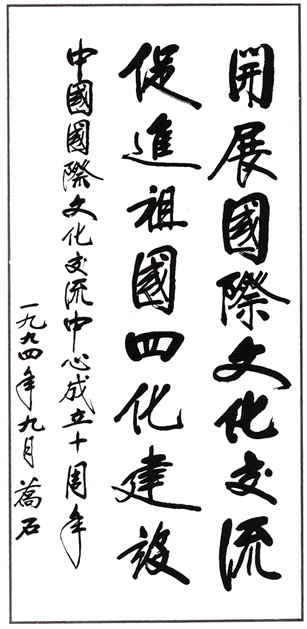 開展國際文化交流
促進祖國四化建设
中國國際文化交流中心成立十周年
一九九四年九月 蒿石